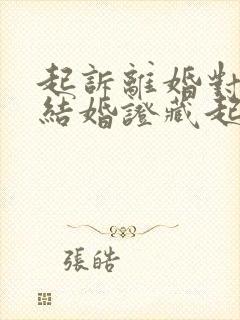 起訴離婚對
結婚證藏起
張皓